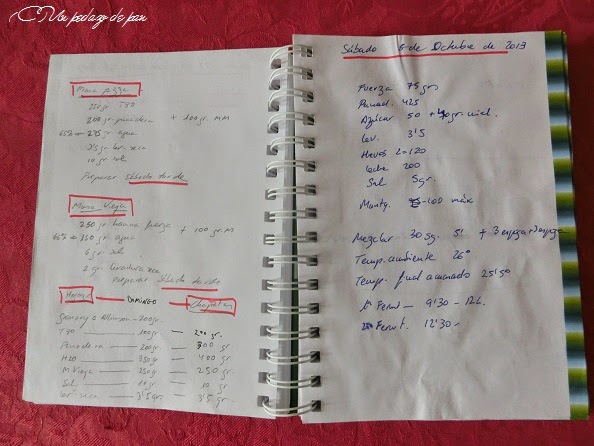 Un pedazo de pan
Masa pizza
250 gr T80
200 gr panadera + 100 gr. MM
65% → 295 gr agua
10 gr sal
Preparar Sábado tarde
Masa Vieja
250 gr harina fuerza + 100 gr. M
gr. agua
6 gr sal
2 gr levadura seca
Preparar Sábado tarde
DOMINGO
200 gr.
T90 100 gr — 200 gr.
Panadera 200 gr. — 300 gr
H2O 350 gr — 400 gr
M Vieja 250 gr — 250 gr.
Sal 10 gr — 10 gr
Lev. seca 3'5 gr. — 3'5 gr.
Sábado 5 de Octubre de 2013
Fuerza 75 gr
Panad. 425
Azúcar 50 + gr. miel.
Lev. 3'5
Huevos 2=120
Leche 200
Sal 5 gr.
Mantq. 100 máx
Mezclar 30 sg. 5' + 3
Temp. ambiente 26°
Temp. final amasado 25'5°
1ª Ferm — 9'30 - 12h.
2ª Ferm. 12'30 -